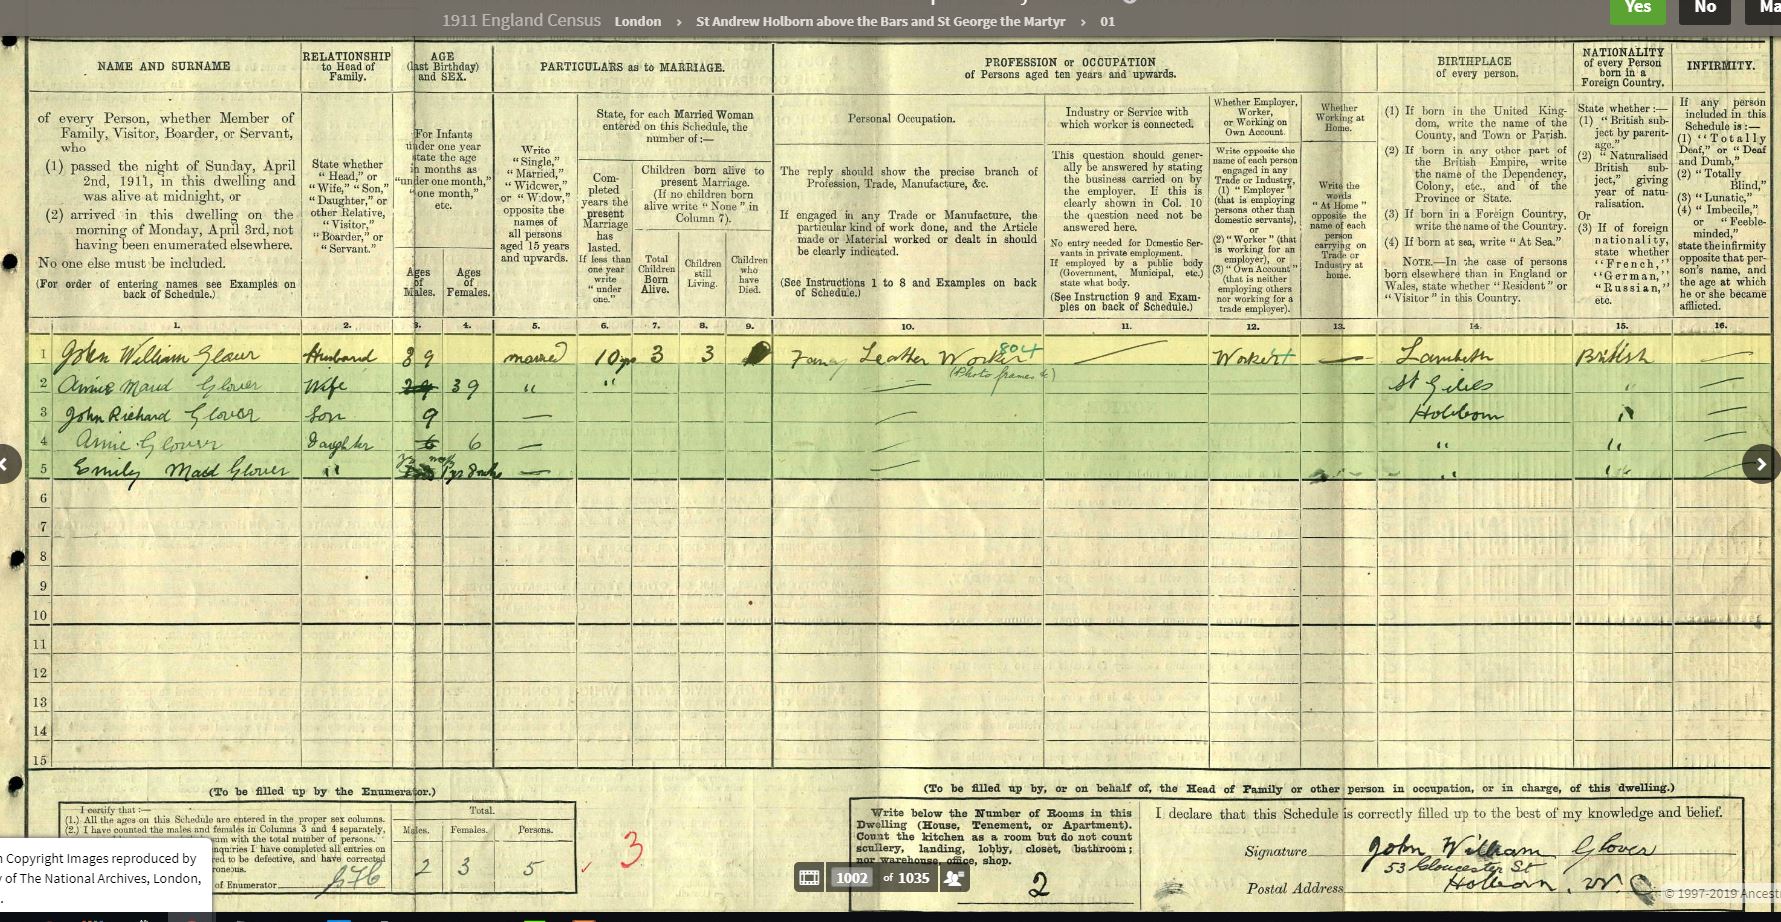 1911 England Census London › St Andrew Holborn above the Bars and St George the Martyr › 01
Yes No
NAME AND SURNAME
RELATIONSHIP
to Head of
Family.
AGE
(last Birthday)
and SEX.
PARTICULARS as to MARRIAGE.
PROFESSION or OCCUPATION
of Persons aged ten years and upwards.
BIRTHPLACE
of every person.
NATIONALITY
of every Person
born in a
Foreign Country.
INFIRMITY.
of every Person, whether Member of
Family, Visitor, Boarder, or Servant,
who
(1) passed the night of Sunday, April
2nd, 1911, in this dwelling and
was alive at midnight, or
(2) arrived in this dwelling on the
morning of Monday, April 3rd, not
having been enumerated elsewhere.
No one else must be included.
(For order of entering names see Examples on
back of Schedule.)
State whether
"Head," or
"Wife," "Son,"
"Daughter," or
other Relative,
"Visitor,"
"Boarder," or
"Servant."
For Infants
under one year
state the age
in months as
"under one month,"
"one month,"
etc.
Ages
of
Males.
Ages
of
Females.
Write
"Single,"
"Married,"
"Widower,"
or "Widow,"
opposite the
names of
all persons
aged 15 years
and upwards.
State, for each Married Woman
entered on this Schedule, the
number of:—
Com-
pleted
years the
present
Marriage
has
lasted.
If less than
one year
write
"under
one."
Children born alive to
present Marriage.
(If no children born
alive write "None" in
Column 7).
Total
Children
Born
Alive.
Children
still
Living.
Children
who
have
Died.
Personal Occupation.
The reply should show the precise branch of
Profession, Trade, Manufacture, &c.
If engaged in any Trade or Manufacture, the
particular kind of work done, and the Article
made or Material worked or dealt in should
be clearly indicated.
(See Instructions 1 to 8 and Examples on back
of Schedule.)
Industry or Service with
which worker is connected.
This question should gener-
ally be answered by stating
the business carried on by
the employer. If this is
clearly shown in Col. 10
the question need not be
answered here.
No entry needed for Domestic Ser-
vants in private employment.
If employed by a public body
(Government, Municipal, etc.)
state what body.
(See Instruction 9 and Exam-
ples on back of Schedule.)
Whether Employer,
Worker,
or Working on
Own Account.
Write opposite the
name of each person
engaged in any
Trade or Industry,
(1) "Employer"
(that is employing
persons other than
domestic servants),
or
(2) "Worker" (that
is working for an
employer), or
(3) "Own Account"
(that is neither
employing others
nor working for a
trade employer).
Whether
Working at
Home.
Write the
words
"At Home"
opposite the
name of each
person
carrying on
Trade or
Industry at
home.
(1) If born in the United King-
dom, write the name of the
County, and Town or Parish.
(2) If born in any other part of
the British Empire, write
the name of the Dependency,
Colony, etc., and of the
Province or State.
(3) If born in a Foreign Country,
write the name of the Country.
(4) If born at sea, write "At Sea."
NOTE.—In the case of persons
born elsewhere than in England or
Wales, state whether "Resident" or
"Visitor" in this Country.
State whether:—
(1) "British sub-
ject by parent-
age."
(2) "Naturalised
British sub-
ject," giving
year of natu-
ralisation.
Or
(3) If of foreign
nationality,
state whether
"French,"
"German,"
"Russian,"
etc.
If any person
included in this
Schedule is:—
(1) "Totally
Deaf," or "Deaf
and Dumb,"
(2) "Totally
Blind,"
(3) "Lunatic,"
(4) "Imbecile,"
or "Feeble-
minded,"
state the infirmity
opposite that per-
son's name, and
the age at which
he or she became
afflicted.
1. 2. 3. 4. 5. 6. 7. 8. 9. 10. 11. 12. 13. 14. 15. 16.
1 John William Glover Husband 39 married 10 yrs 3 3 Fancy Leather Worker 804 Worker Lambeth British
(Photo frames &c)
2 Annie Maud Glover Wife 39 " " St Giles "
3 John Richard Glover Son 9 — Holborn "
4 Annie Glover Daughter 6 — " "
5 Emily Maud Glover " — " "
6
7
8
9
10
11
12
13
14
15
(To be filled up by the Enumerator.)
I certify that:—
(1.) All the ages on this Schedule are entered in the proper sex columns.
(2.) I have counted the males and females in Columns 3 and 4 separately,
um with the total number of persons.
nquiries I have completed all entries on
ed to be defective, and have corrected
roneous.
of Enumerator
Total.
Males. Females. Persons.
2 3 5
3
Copyright Images reproduced by
of The National Archives, London,
(To be filled up by, or on behalf of, the Head of Family or other person in occupation, or in charge, of this dwelling.)
Write below the Number of Rooms in this
Dwelling (House, Tenement, or Apartment).
Count the kitchen as a room but do not count
scullery, landing, lobby, closet, bathroom;
nor warehouse, office, shop.
2
I declare that this Schedule is correctly filled up to the best of my knowledge and belief.
Signature John William Glover
Postal Address 53 Gloucester St
Holborn. W.C
1002 of 1035
© 1997-2019 Ancest